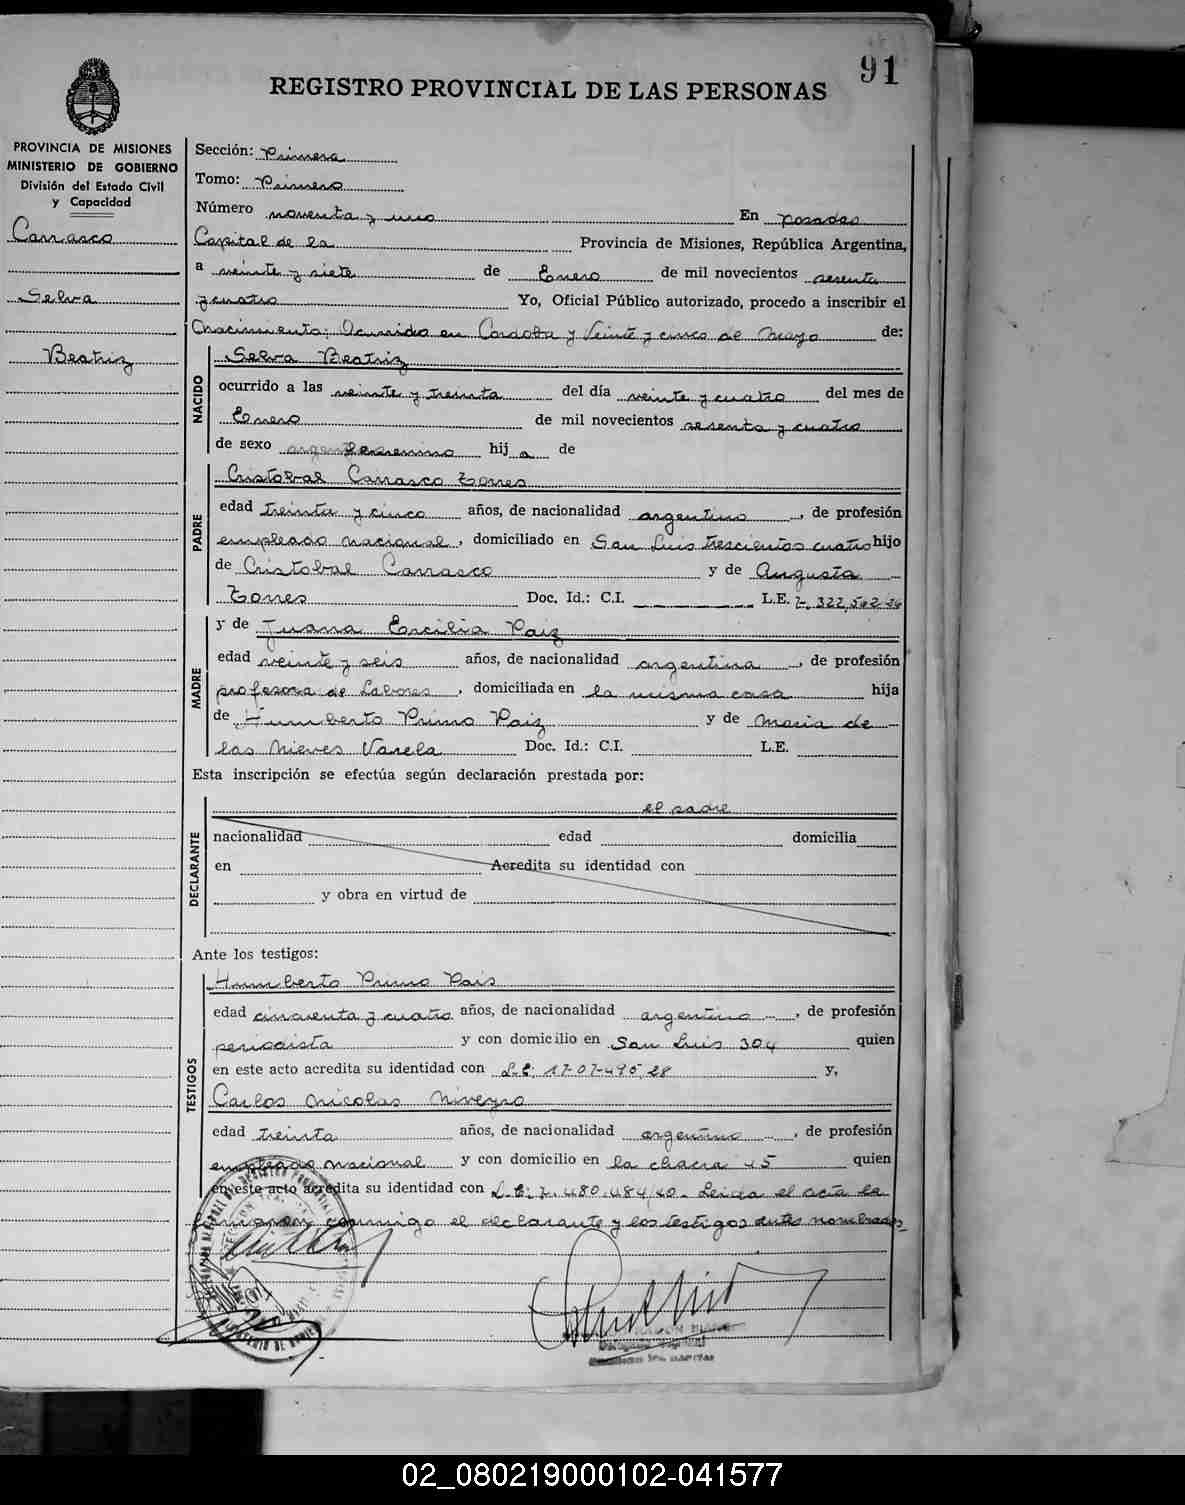 91
REGISTRO PROVINCIAL DE LAS PERSONAS
PROVINCIA DE MISIONES
MINISTERIO DE GOBIERNO
División del Estado Civil
y Capacidad
Carrasco
Selva
Beatriz
Sección: Primera
Tomo: Primero
Número noventa y uno En Posadas
Capital de la Provincia de Misiones, República Argentina,
a veinte y siete de Enero de mil novecientos sesenta
y cuatro Yo, Oficial Público autorizado, procedo a inscribir el
Nacimiento: Ocurrido en Cordoba y Veinte y cinco de Mayo de:
NACIDO
Selva Beatriz
ocurrido a las veinte y treinta del día veinte y cuatro del mes de
Enero de mil novecientos sesenta y cuatro
de sexo femenino hij a de
PADRE
Cristobal Carrasco Torres
edad treinta y cinco años, de nacionalidad argentino, de profesión
empleado nacional, domiciliado en San Luis trescientos cuatro hijo
de Cristobal Carrasco y de Augusta
Torres Doc. Id.: C.I. L.E. 7.322.562.26
MADRE
y de Juana Ercilia Paiz
edad veinte y seis años, de nacionalidad argentina, de profesión
profesora de Labores, domiciliada en la misma casa hija
de Humberto Primo Paiz y de Maria de
las Nieves Varela Doc. Id.: C.I. L.E.
Esta inscripción se efectúa según declaración prestada por:
DECLARANTE
el padre
nacionalidad edad domicilia
en Acredita su identidad con
y obra en virtud de
Ante los testigos:
TESTIGOS
Humberto Primo Pais
edad cincuenta y cuatro años, de nacionalidad argentino, de profesión
periodista y con domicilio en San Luis 304 quien
en este acto acredita su identidad con L.E. 17-07-495,28 y,
Carlos Nicolas Niveyro
edad treinta años, de nacionalidad argentino, de profesión
empleado nacional y con domicilio en la chacra 45 quien
en este acto acredita su identidad con L.E. 7.480.484/40. Leida el acta la
firman conmigo el declarante y los testigos antes nombrados
02_080219000102-041577